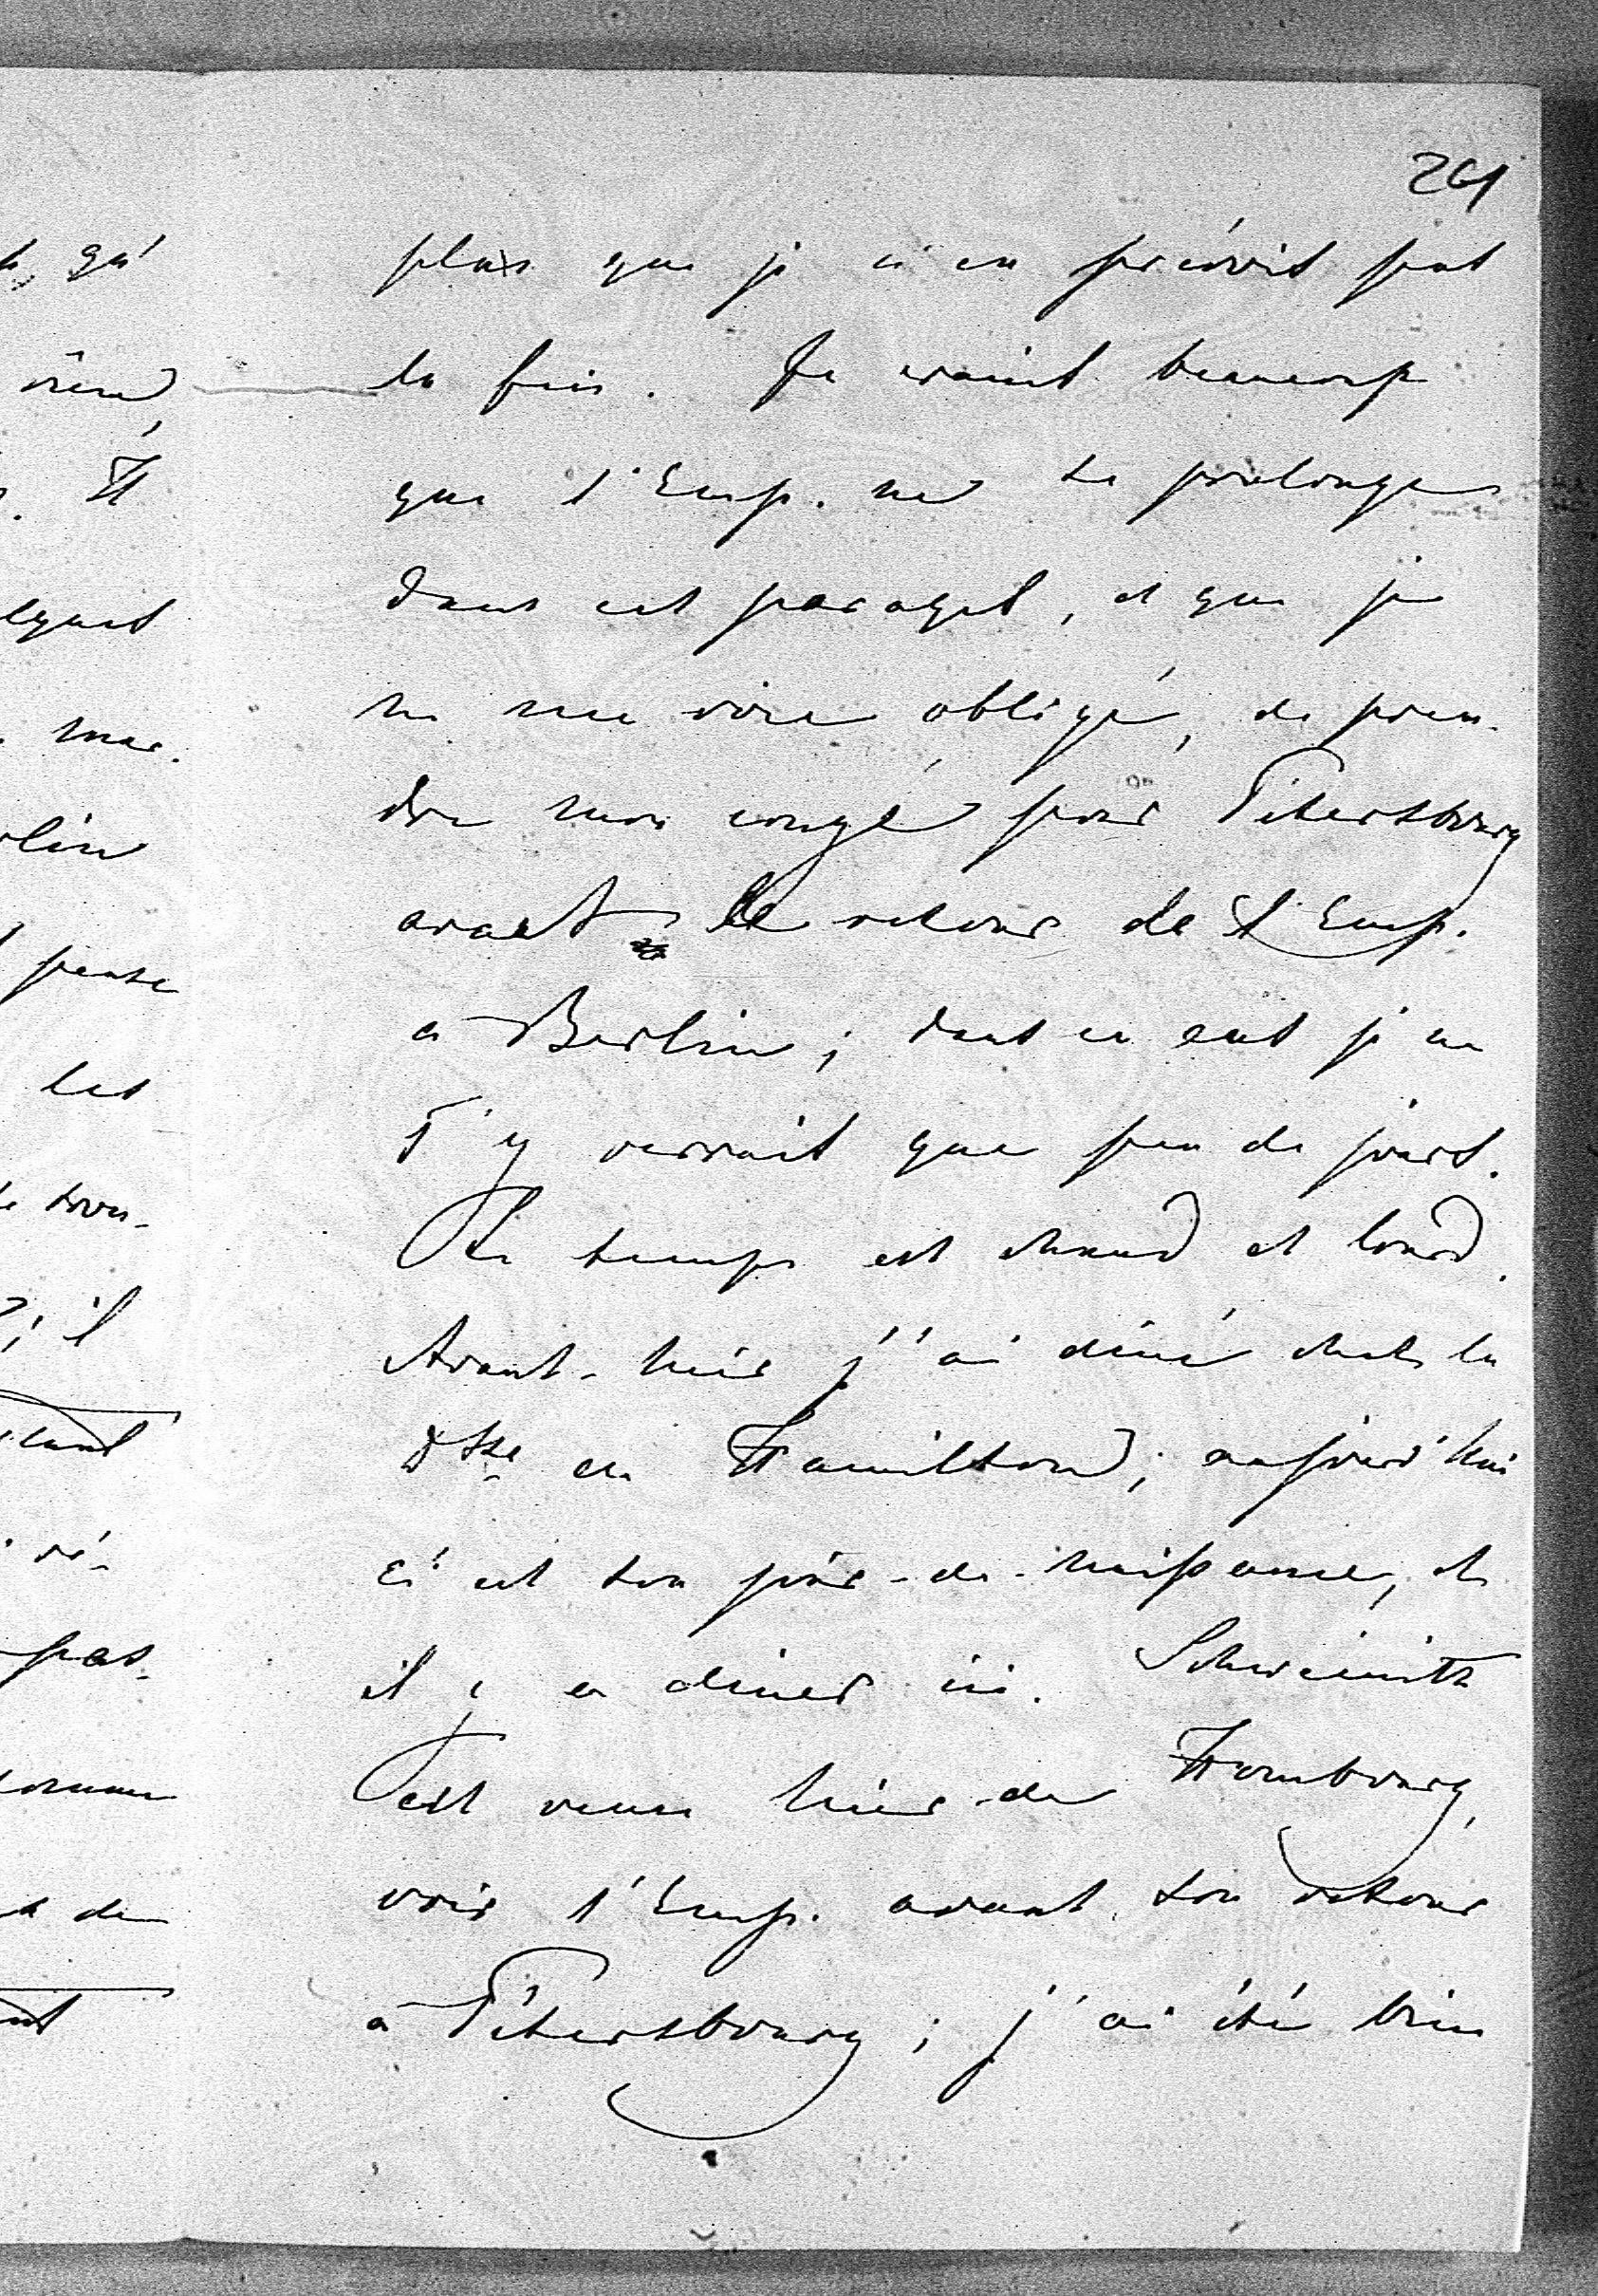 261
plus que je n'en prévois pas
la fin. Je crains beaucoup
que l'Emp. ne se prolonge
dans ces parages, et que je
ne me voie obligé, de pren-
dre mon congé pour Pétersbourg
avant le retour de l'Emp.
à Berlin; dans ce cas je ne
T'y verrais que peu de jours.
Le temps est chaud et lourd.
Avant-hier j'ai diné chez la
Dsse de Hamilton; aujourd'hui
c'est son jour-de-naissance, et
il y a diner ici. Schweinitz
est venu hier de Hombourg,
voir l'Emp. avant son retour
à Pétersbourg; j'ai été bien